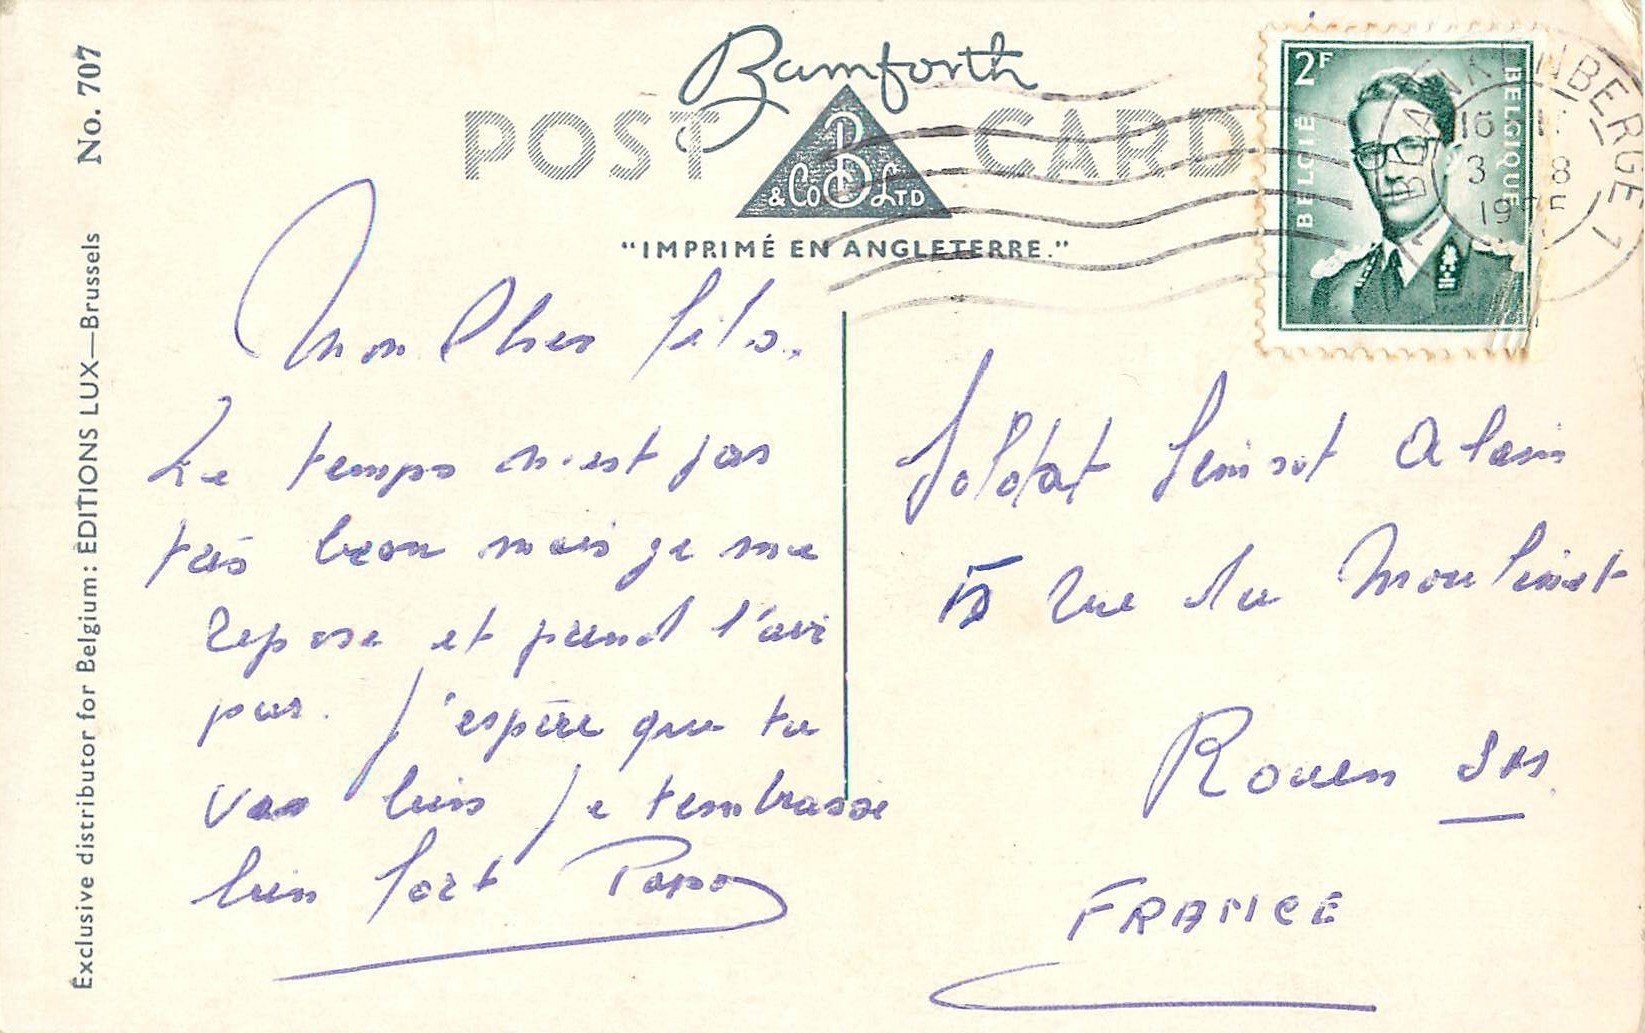 Bamforth
POST CARD
B
& Co LTD
"IMPRIMÉ EN ANGLETERRE."
No. 707
Exclusive distributor for Belgium: ÉDITIONS LUX—Brussels
2F
BELGIË
BELGIQUE
BLANKENBERGE 1
16
3 8
Mon Cher fils.
Le temps n'est pas
très beau mais je me
repose et prend l'air
pur. J'espère que tu
vas bien Je t'embrasse
bien fort Papa
Soldat Alain
rue du Moulinet
Rouen SM
FRANCE